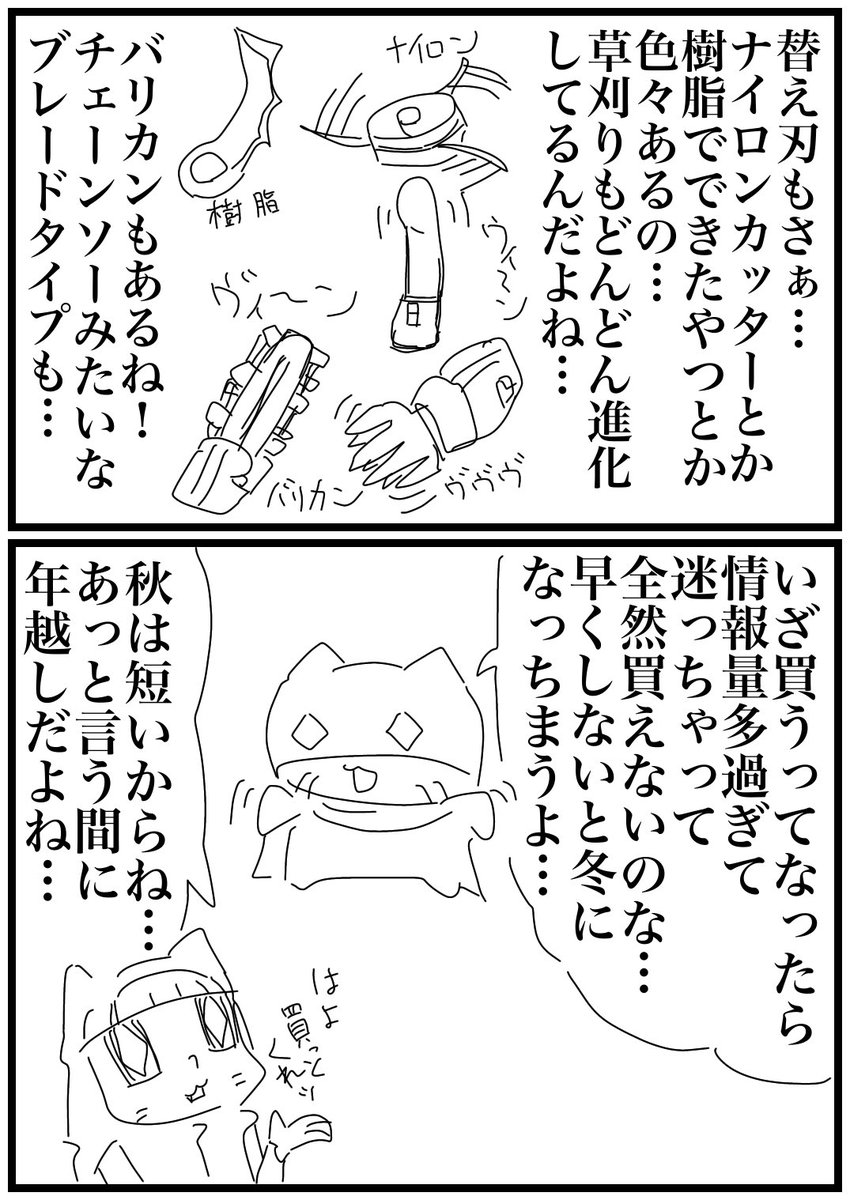 替え刃もさぁ…
ナイロンカッターとか
樹脂でできたやつとか
色々あるの…
草刈りもどんどん進化
してるんだよね…
ナイロン
樹脂
ウィーン
ヴィ〜ン
バリカン
ヴヴヴ
バリカンもあるね！
チェーンソーみたいな
ブレードタイプも…
いざ買うってなったら
情報量多過ぎて
迷っちゃって
全然買えないのな…
早くしないと冬に
なっちまうよ…
秋は短いからね…
あっと言う間に
年越しだよね…
はよ
買っと
くれ